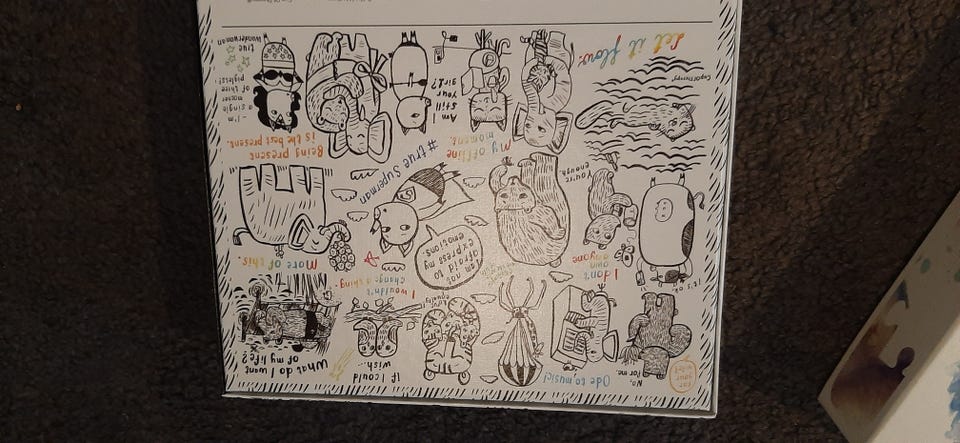 What do I want
of my life?
If I could
wish...
I wouldn't
change a thing.
Ode to music!
No.
For me.
eat
your
More of this.
I am
not
afraid to
express my
emotions.
I don't
own
anyone
it's ok.
#true Superman
You're
enough.
Being present
is the best present.
My offline
moment.
Let it flow.
CupOfTherapy
- I'm
a single
mother
of three
piglets!
true
Wonderwoman
Am I
still
your
girl?